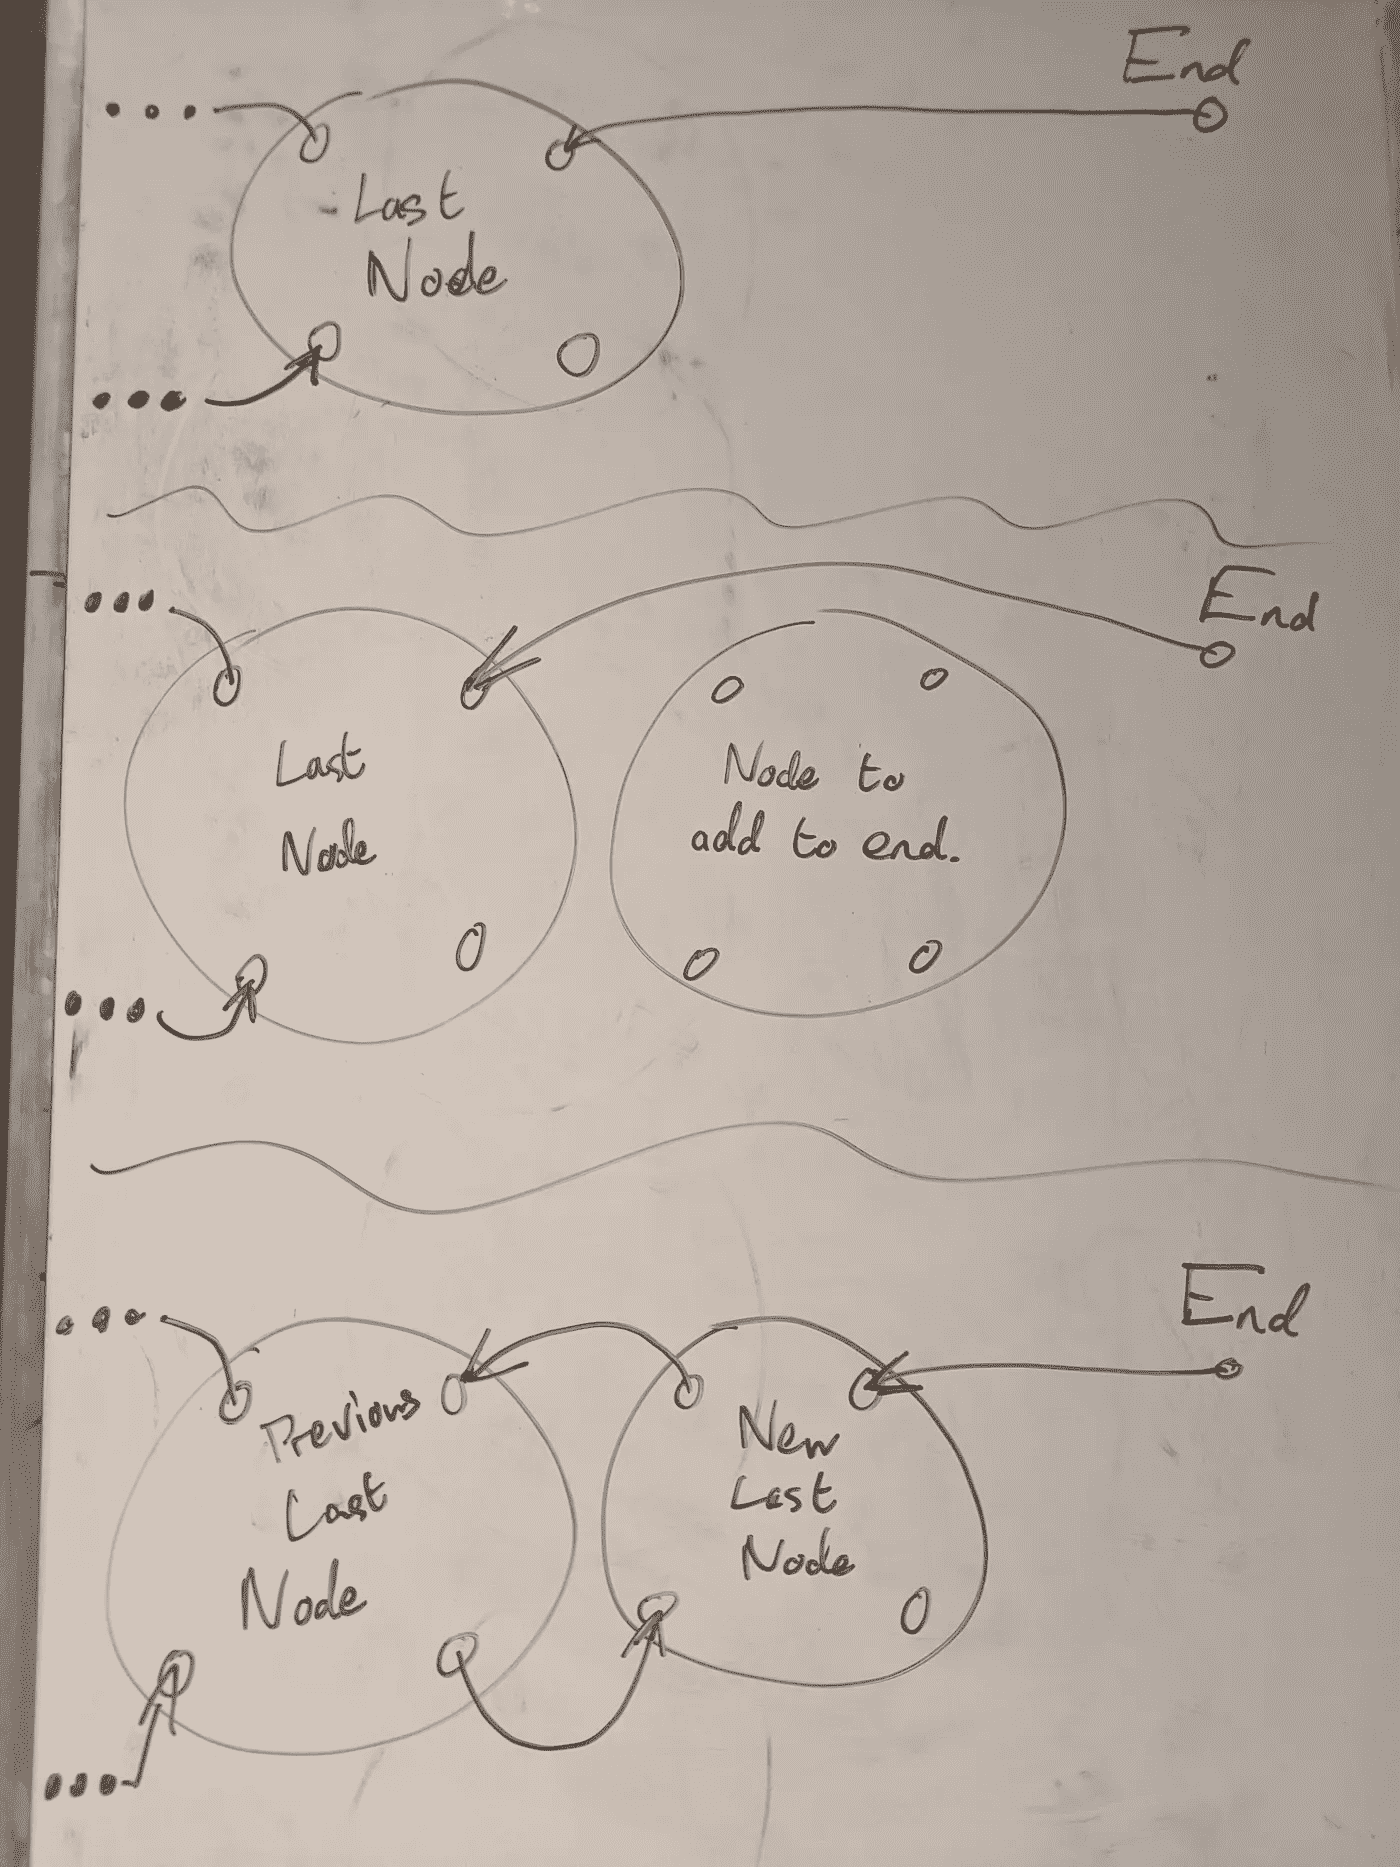 End
Last
Node
End
Last
Node
Node to
add to end.
End
Previous
Last
Node
New
Last
Node